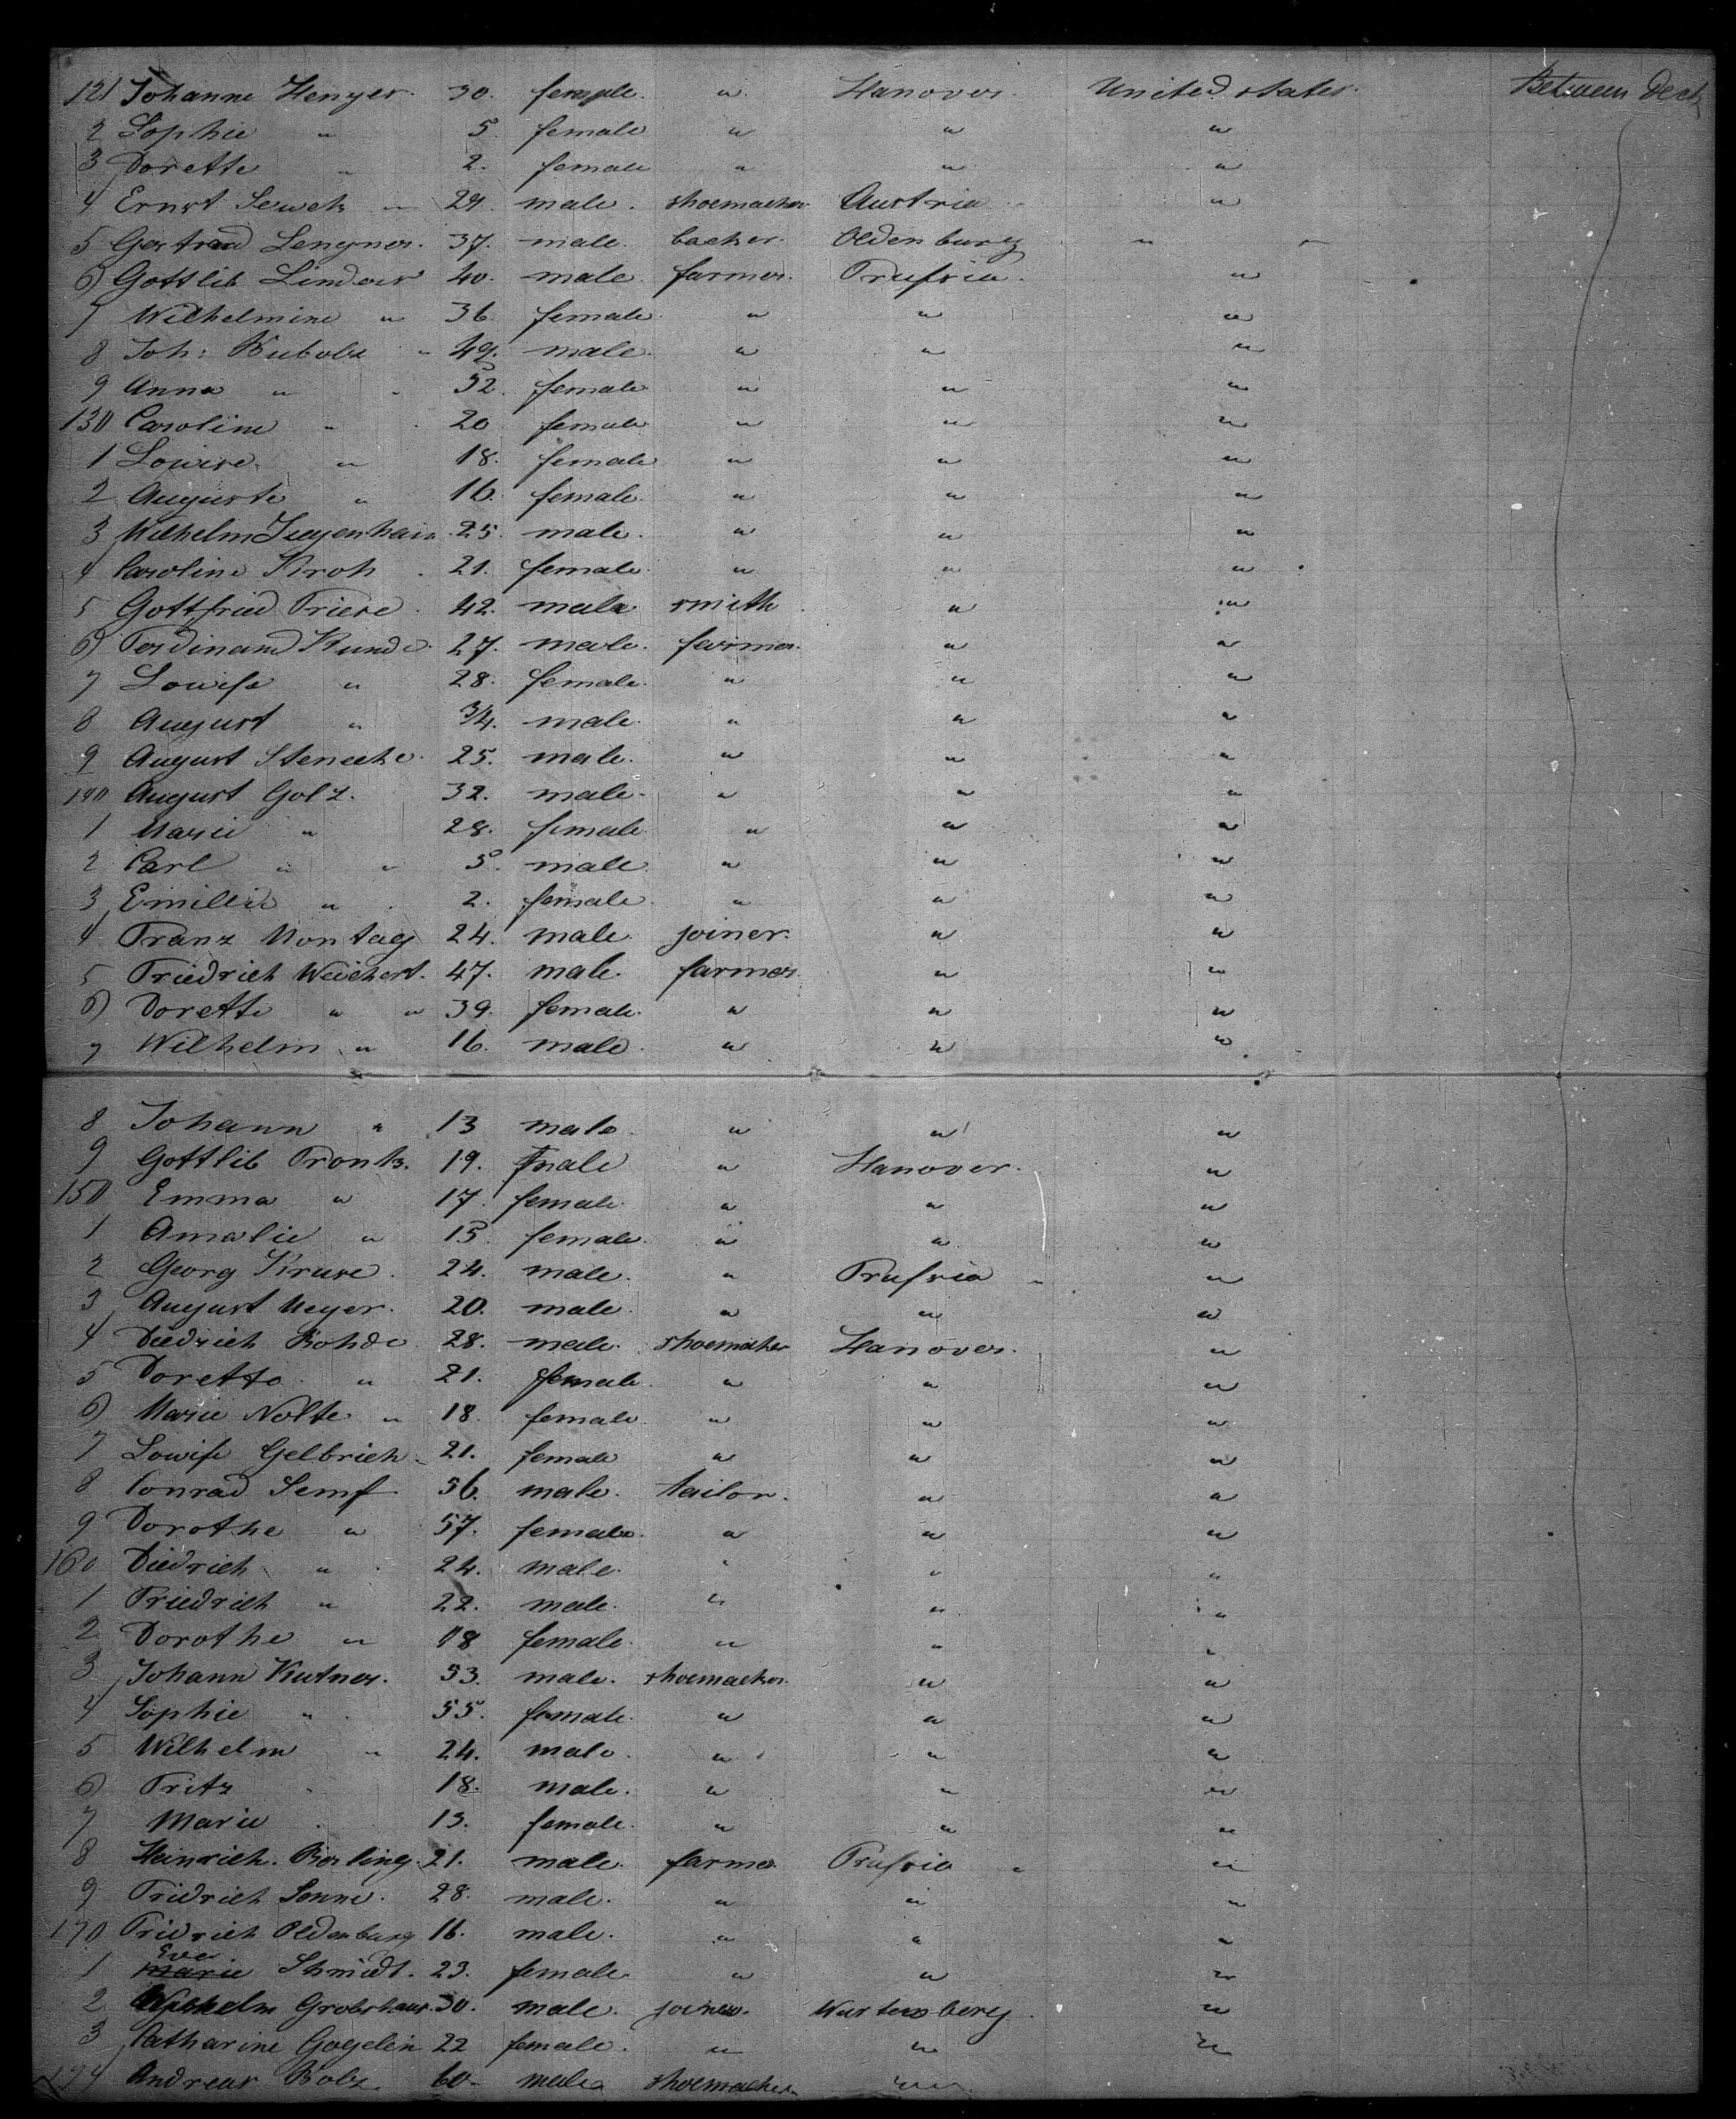 121 Johanne Henyer. 30. female. " Hanover. United states. Between Deck
2 Sophie " 5. female " " "
3 Dorette " 2. female " " "
4 Ernst " 29. male. shoemacker Austria "
5 Gertraud Lengner. 37. male. backer. Oldenburg " "
6) Gottlib Linder 40. male. farmer. Prussia. "
7 Wilhelmine " 36. female. " " "
8 Joh: Kubolz " 49. male. " " "
9 Anna " " 52. female " " "
130 Caroline " 20 female " " "
1 Lowise. " 18. female " " "
2 Auguste " 16. female. " " "
3 Wilhelm 25. male. " " "
4 Caroline Kroh. 21. female. " " "
5 Gottfried Friese. 42. male smith " "
6) Ferdinand Kunde. 27. male. farmer. " "
7 Lowise " 28. female. " " "
8 August " 3/4. male. " " "
9 August 25. male. " " "
140 August Golz. 32. male. " " "
1 Marie " 28. female. " " "
2 Carl " " 5. male. " " "
3 Emilie " 2. female. " " "
4 Franz Montag 24. male. joiner. " "
5 Friedrich Weichert. 47. male. farmer. " "
6) Dorette " " 39. female. " " "
7 Wilhelm " 16. male. " " "
8 Johann " 13 male " " "
9 Gottlib Pronk. 19. male " Hanover. "
150 Emma " 17. female. " " "
1 Amalie " 15. female. " " "
2 Georg Kruse. 24. male. " Prussia " "
3 August Meyer. 20. male. " " "
4 Diedrich Rohde 28. male. shoemaker Hanover. "
5 Dorette. " 21. female. " " "
6) Marie Nolte " 18. female. " " "
7 Lowise Gelbrich. 21. female " " "
8 Conrad Semf 56. male. tailor. " "
9 Dorothe " 57. female. " " "
160 Diedrich " 24. male. " " "
1 Friedrich " 22. male. " " "
2 Dorothe " 18 female. " " "
3 Johann Kutner. 53. male. shoemacker. " "
4 Sophie " 55. female. " " "
5 Wilhelm " 24. male. " " "
6) Fritz 18. male. " " "
7 Marie 13. female. " " "
8 Heinrich. 21. male. farmer. Prussia " "
9 Fridrich Sonne. 28. male. " " "
170 Fridrich Oldenburg 16. male. " " "
Eva
1 Marie Schmidt. 23. female. " " "
2 Wilhelm 30. male. joiner. Wurtemberg. "
3 Catharine Gogelin 22 female. " " "
174 Andreas Bolz. 60. male. shoemacker "